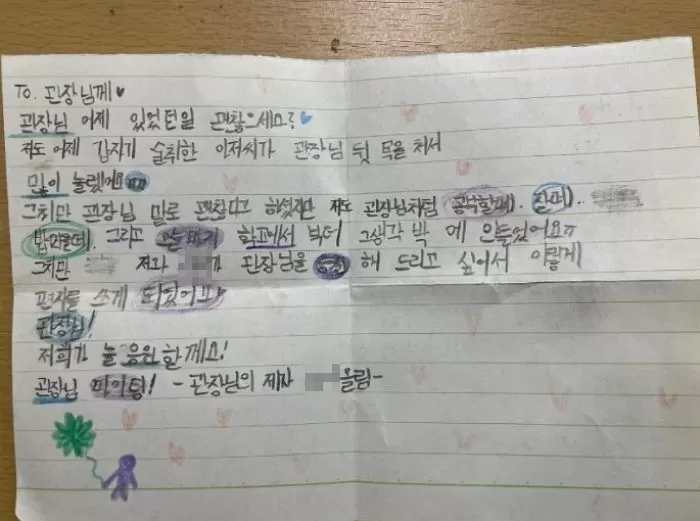 To. 관장님께♥
관장님 어제 있었던일 괜찮으세요?♥
저도 어제 갑자기 술취한 아저씨가 관장님 뒷 목을 쳐서
많이 놀랬어요ㅠㅠ
그치만 관장님 말로 괜찮다고 하셨지만 저도 관장님처럼 공부할때. 잘때.
밥먹을때. 그리고 오늘까지 학교에서 부터 그생각 밖 에 안들었어요ㅠㅠ
그치만 저와 가 관장님을 응원 해 드리고 싶어서 이렇게
편지를 쓰게 되었어요
관장님!
저희가 늘 응원할께요!
관장님 파이팅! -관장님의 제자 올림-